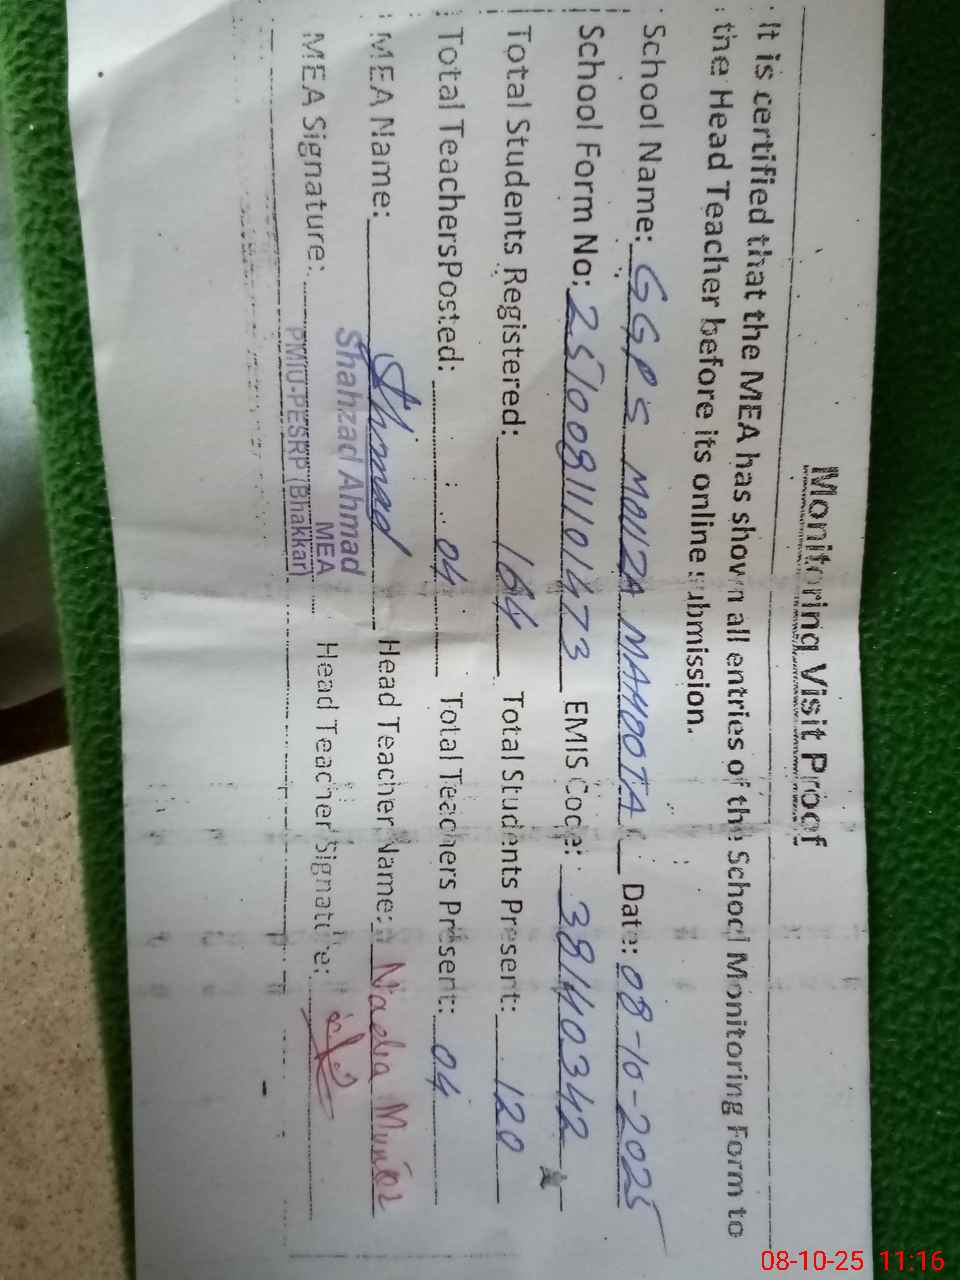 Monitoring Visit Proof
It is certified that the MEA has shown all entries of the School Monitoring Form to
the Head Teacher before its online submission.
School Name: GGPS MAUZA MAHOOTA Date: 08-10-2025
School Form No: 25100811101473 EMIS Code: 38140342
Total Students Registered: 164 Total Students Present: 120
Total TeachersPosted: 04 Total Teachers Present: 04
MEA Name: Ahmad Head Teacher Name: Nadia
MEA Signature: Head Teacher Signature:
Shahzad Ahmad
MEA
PMIU-PESRP (Bhakkar)
08-10-25 11:16